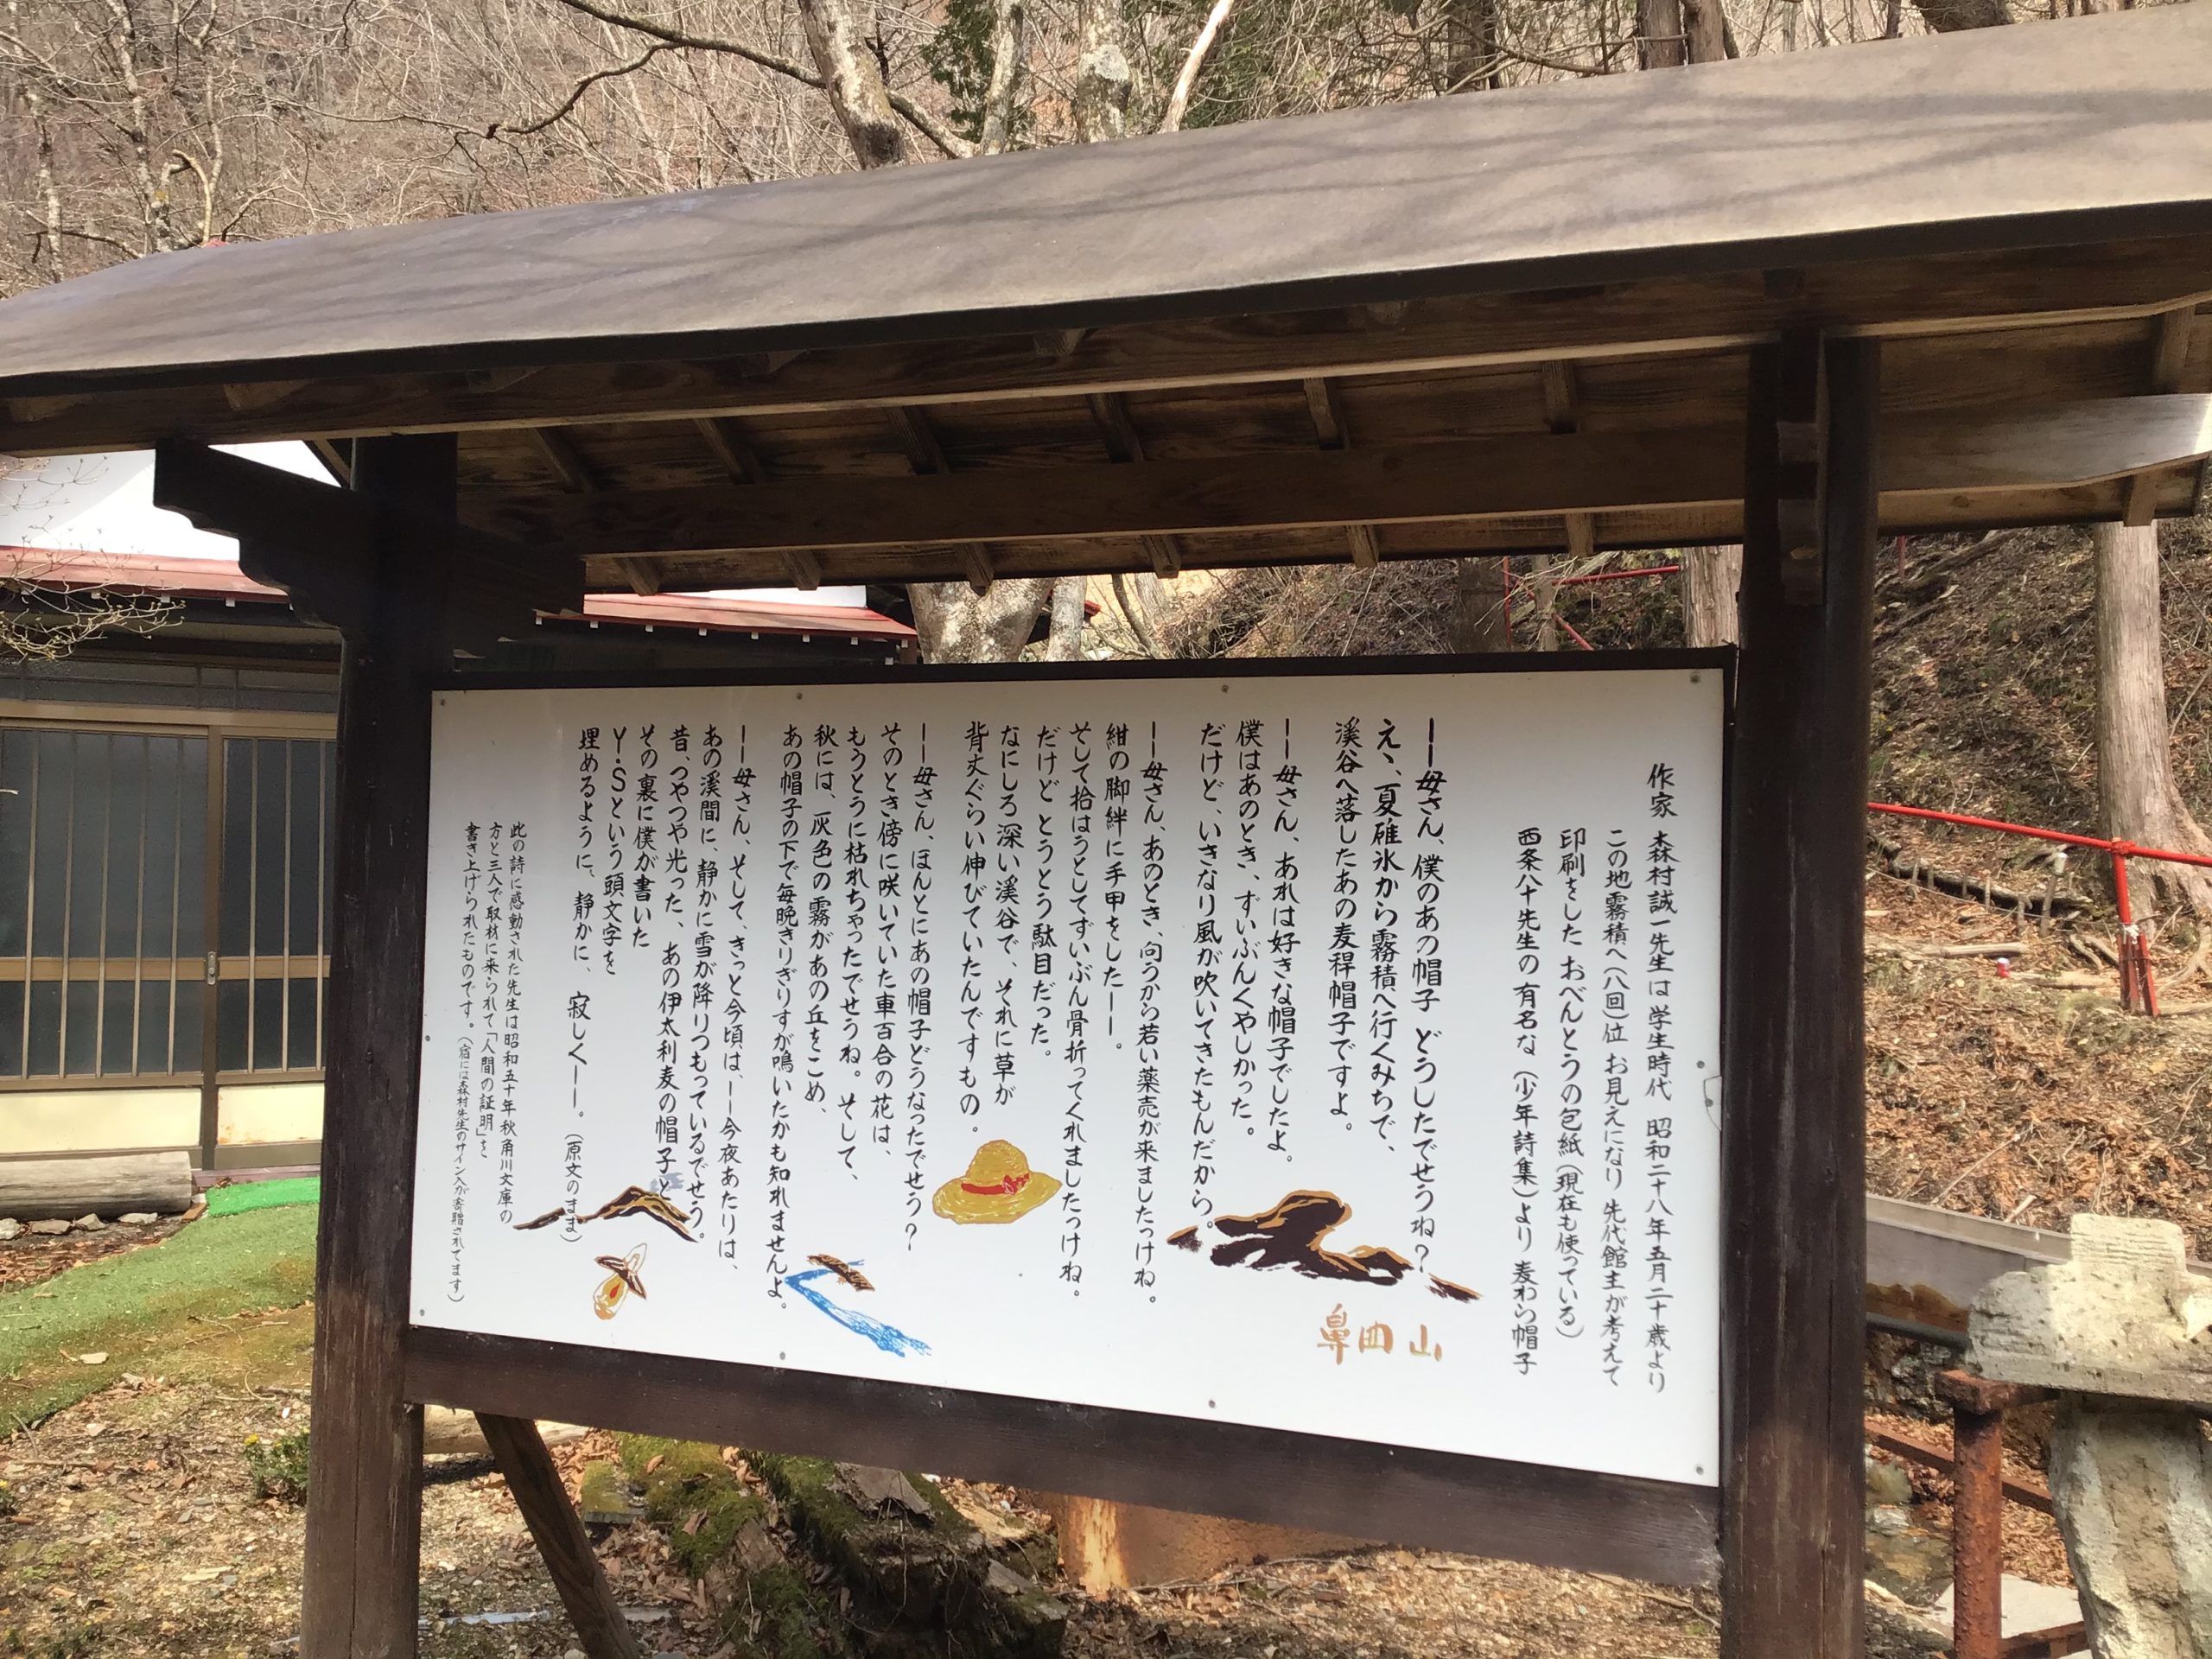 作家 森村誠一先生は学生時代 昭和二十八年五月二十歳より
この地霧積へ(八回)位 お見えになり 先代館主が考えて
印刷をした おべんとうの包紙(現在も使っている)
西条八十先生の有名な(少年詩集)より 麦わら帽子
――母さん、僕のあの帽子 どうしたでせうね？
えゝ、夏碓氷から霧積へ行くみちで、
溪谷へ落したあの麦稈帽子ですよ。
――母さん、あれは好きな帽子でしたよ。
僕はあのとき、ずいぶんくやしかった。
だけど、いきなり風が吹いてきたもんだから。
――母さん、あのとき、向うから若い薬売が来ましたっけね。
紺の脚絆に手甲をした――。
そして拾はうとしてずいぶん骨折ってくれましたっけね。
だけど とうとう駄目だった。
なにしろ深い溪谷で、それに草が
背丈ぐらい伸びていたんですもの。
――母さん、ほんとにあの帽子どうなったでせう？
そのとき傍に咲いていた車百合の花は、
もうとうに枯れちゃったでせうね。そして、
秋には、灰色の霧があの丘をこめ、
あの帽子の下で毎晩きりぎりすが鳴いたかも知れませんよ。
――母さん、そして、きっと今頃は、――今夜あたりは、
あの溪間に、静かに雪が降りつもっているでせう。
昔、つやつや光った、あの伊太利麦の帽子と
その裏に僕が書いた
Y・Sという頭文字を
埋めるように、静かに、 寂しく――。 (原文のまま)
此の詩に感動された先生は昭和五十年秋角川文庫の
方と三人で取材に来られて「人間の証明」を
書き上げられたものです。(宿には森村先生のサイン入が寄贈されてます)
鼻曲山